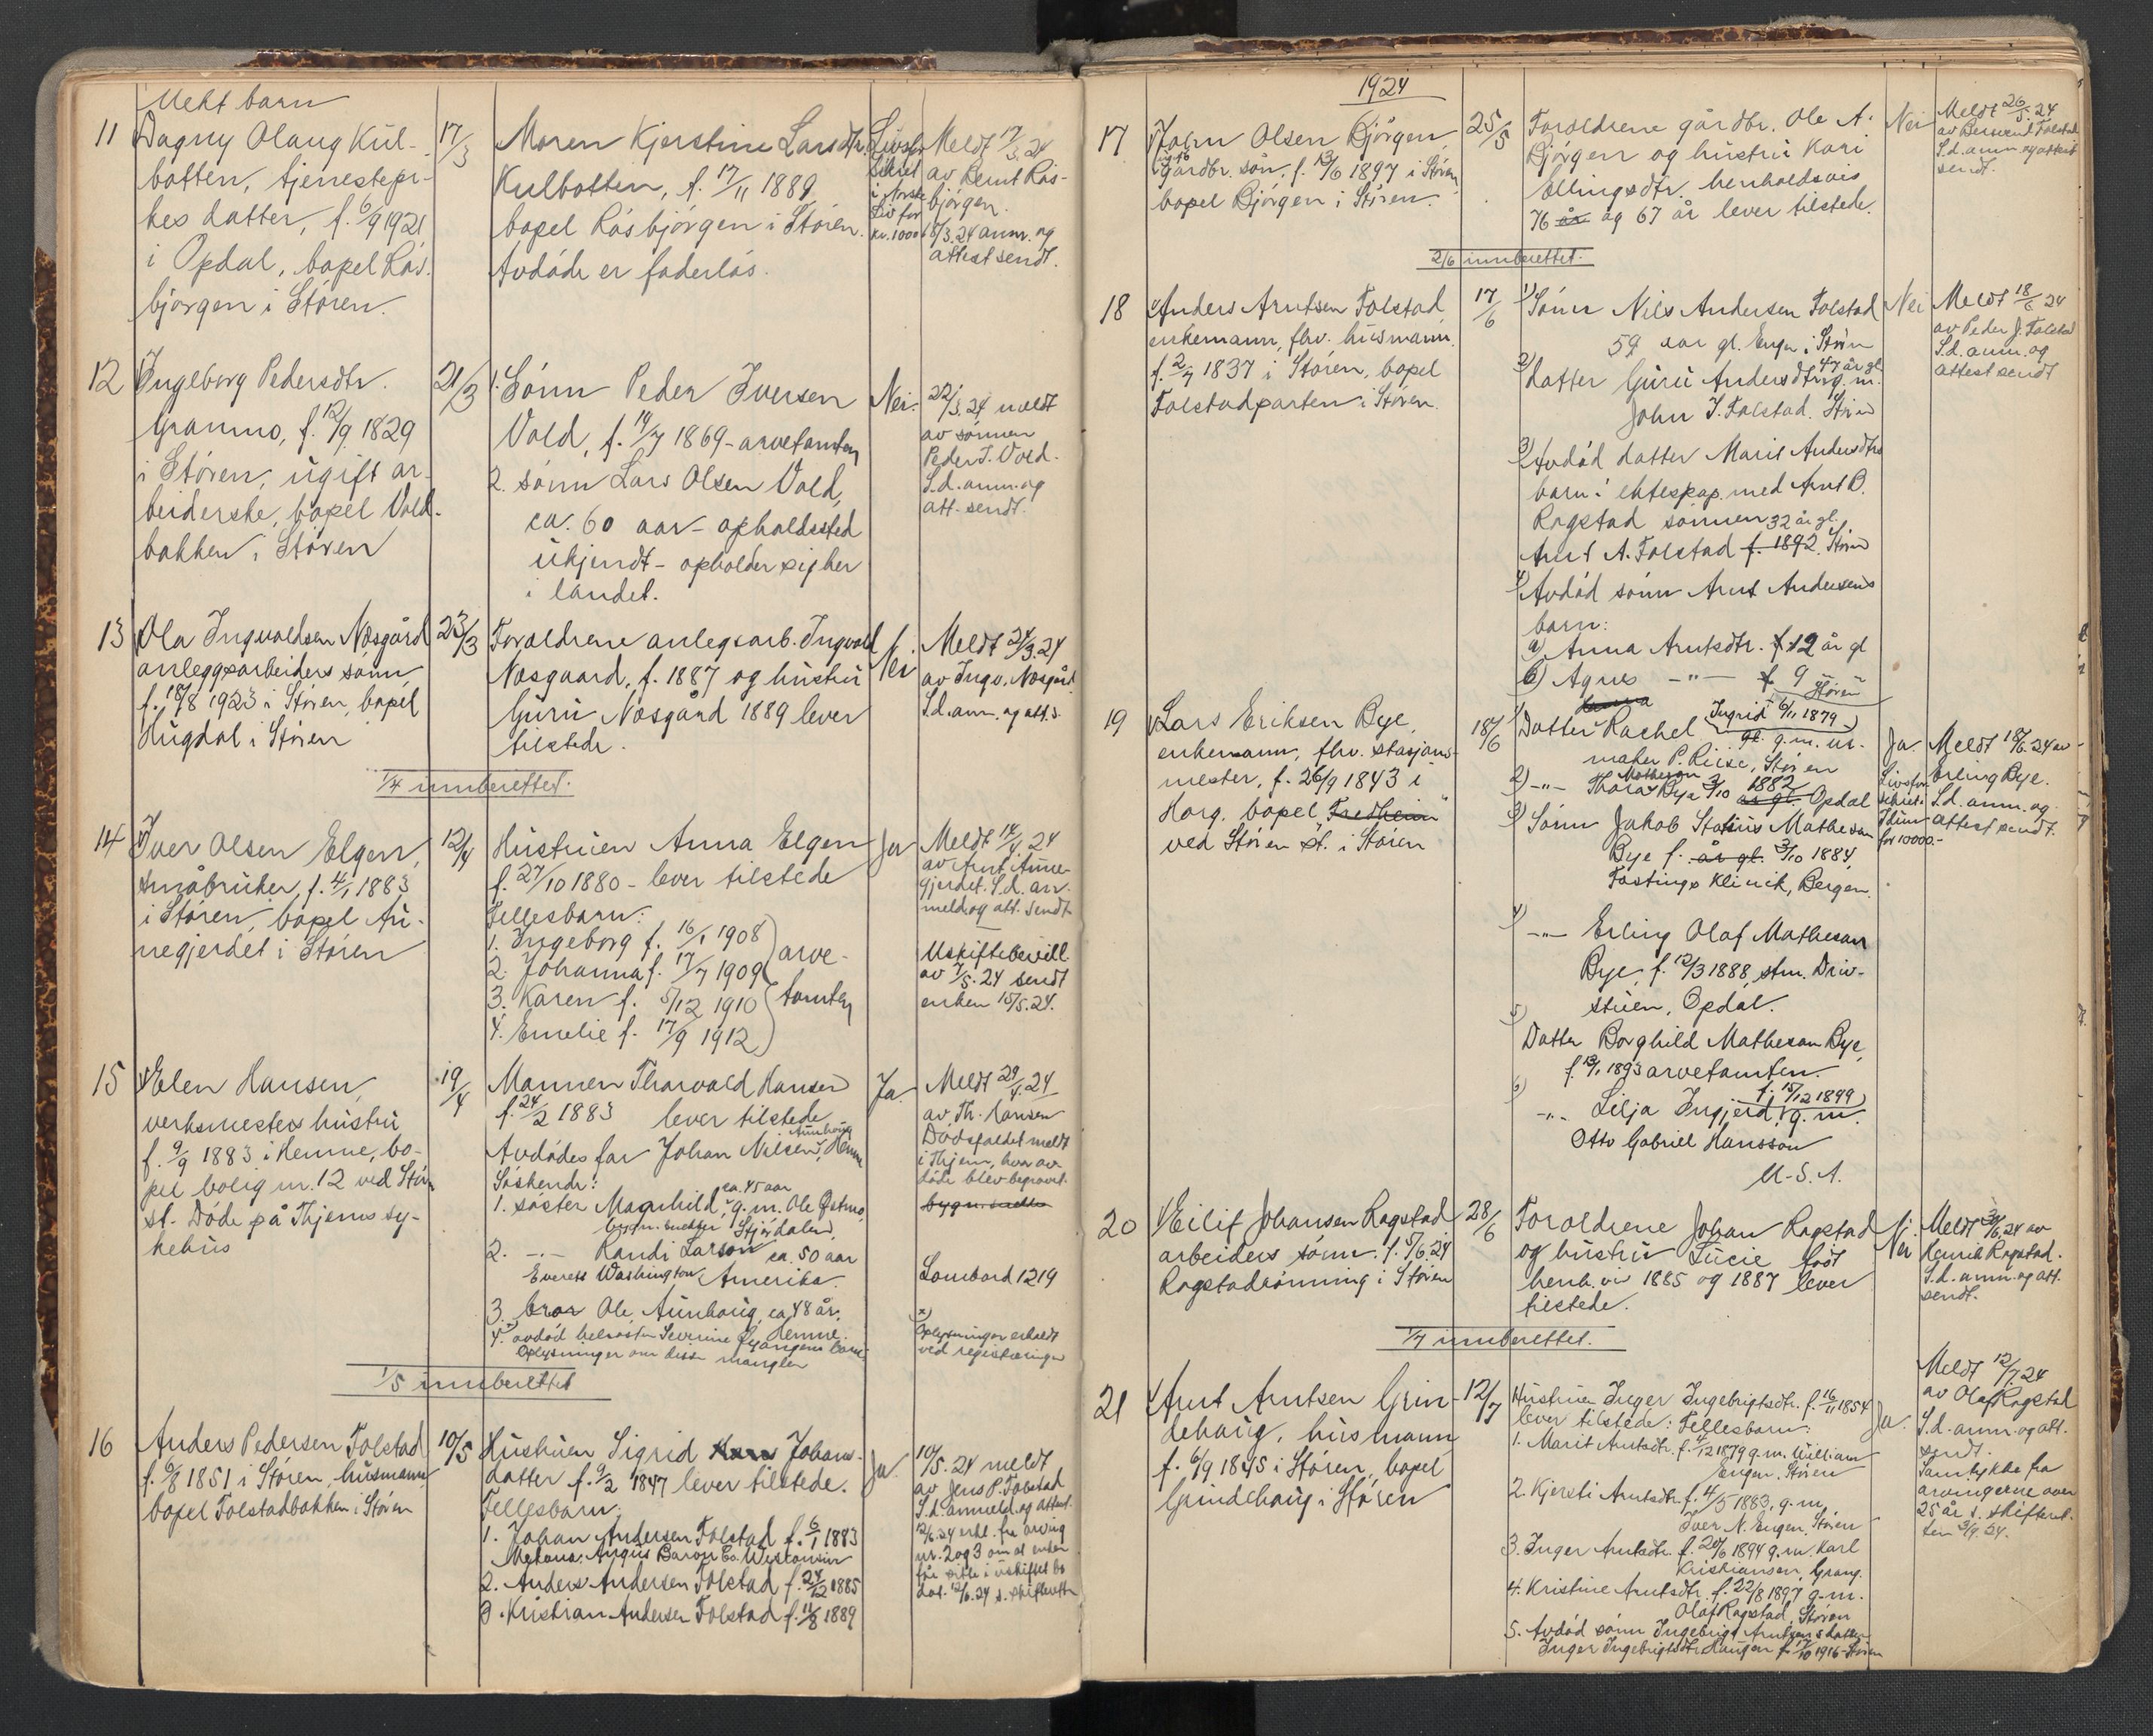 Uekt barn
11 Dagny Olaug Kul-
botten, tjenestepi-
kes datter, f. 6/9 1921
i Opdal, bopel Rös-
björgen i Stören.
17/3
Moren Kjerstine Larsdtr.
Kulbotten, f. 17/11 1889
bopel Rösbjörgen i Stören.
Avdöde er faderlös.
Livsfor-
sikret
i norske
Liv for
kr. 1000
Meldt 17/3 24
av Bernt Rös-
björgen.
18/3.24 anm. og
attest sendt.
12 Ingeborg Pedersdtr.
Gramno, f. 12/9 1829
i Stören, ugift ar-
beiderske, bopel Vold-
bakken i Stören
21/3
1. Sönn Peder Iversen
Vold, f. 14/7 1869 - arvetomten
2. sönn Lars Olsen Vold,
ca. 60 aar - opholdssted
ukjendt - opholder sig her
i landet.
Nei.
22/3.24 meldt
av sönnen
Peder I. Vold.
S.d. anm. og
att. sendt.
13 Ola Ingvaldsen Næsgård
anleggsarbeiders sønn,
f. 18/8 1923 i Stören, bopel
Hugdal i Stören
23/3
Foreldrene anlegsarb. Ingvald
Næsgaard, f. 1887 og hustru
Guru Næsgård 1889 lever
tilstede.
Nei
Meldt 24/3.24
av Ingv. Næsgård
S.d. anm. og att. s.
1/4 innberettet.
14 Iver Olsen Elgen,
småbruker, f. 4/1 1883
i Stören, bopel Au-
negjerdet i Stören
12/4
Hustruen Anna Elgen
f. 27/10 1880 - lever tilstede
Fellesbarn:
1. Ingeborg f. 16/1 1908
2. Johanna f. 17/7 1909
3. Karen f. 5/12 1910
4. Emelie f. 17/9 1912
arve-
tomten
Ja
Meldt 14/4 24
av Arnt Aune-
gjerdet. S.d. an-
meld. og att. sendt
Uskiftebevill
av 7/5.24 sendt
enken 15/5.24.
15 Elen Hansen,
verksmesters hustru
f. 9/9 1883 i Hemne, bo-
pel bolig nr. 12 ved Stören
st. Döde på Thjems sy-
kehus
19/4
Mannen Tharvald Hansen
f. 24/2 1883 lever tilstede
Avdödes far Johan Nilsen Aunhaug, Hemne
Söskende:
1. söster Magnhild, ca. 45 aar g. m. Ole Østmo,
Stjördalen.
2. -"- Randi Larson ca. 50 aar
Everett Washington Amerika.
3. bror Ole Aunhaug, ca. 48 år,
Hemne.
4. avdöd helsöster Severine Gjöngens barn.
Oplysninger om disse mangler
Ja.
Meldt 29/4.24
av Th. Hansen
Dödsfaldet meldt
i Thjem, hvor av-
döde blev begravet.
Lombard 1219
x) Oplysninger erholdt
ved registreringen
1/5 innberettet
16 Anders Pedersen Folstad
f. 6/8 1851 i Stören, husmann
bopel Folstadbakken i Stören
10/5
Hustruen Sigrid Johans-
datter f. 9/2 1847 lever tilstede.
Fellesbarn:
1. Johan Andersen Folstad f. 6/1 1883
Angus Baron Co. Wisconsin
2. Anders Andersen Folstad f. 24/12 1885
3. Kristian Andersen Folstad f. 11/8 1889
Ja.
10/5.24 meldt
av Jens P. Folstad
S.d. anmeld. og attest.
12/6.24 erkl. fra arving
nr. 2 og 3 om at enken
får sitte i uskiftet bo
dat. 12/6.24 s. skifteretten
1924
17 John Olsen Björgen,
ugift
gårdbr. sön, f. 13/6 1897 i Stören
bopel Björgen i Stören.
25/5
Foreldrene gårdbr. Ole A.
Björgen og hustru Kari
Ellingsdtr. henholdsvis
76 år og 67 år lever tilstede.
Nei
Meldt 26/5.24
av Folstad
S.d. anm. og attest
sendt.
2/6 innberettet.
18 Anders Arntsen Folstad
enkemann, fhv. husmann.
f. 2/7 1837 i Stören, bopel
Folstadparten i Stören.
17/6
1) Sönn Nils Andersen Folstad
59 aar gl. Engen i Stören
2) datter Guru Andersdtr. 47 år gl. g. m.
John J. Folstad. Stören
3) Avdöd datter Marit Andersdtrs
barn i ekteskap med Arnt O.
Rogstad sönnen 32 år gl.
Arnt A. Folstad f. 1892. Stören
4) Avdöd sönn Arnt Andersens
barn:
a) Anna Arntsdtr. 12 år gl
b) Agnes -"- 9 "
Stören
Nei
Meldt 18/6 24
av Peder J. Folstad
S.d. anm. og
attest sendt
19 Lars Eriksen Bye,
enkemann, fhv. stasjons-
mester, f. 26/9 1843 i
Horg, bopel "Fredheim"
ved Stören st. i Stören
18/6
1) Datter Rachel Ingrid 6/11 1879
gl. g. m. ur-
maker P. Riise, Stören
2) -"- Thora Matheson Bye 3/10 1882 år gl. Opdal
3) Sönn Jakob Statius Matheson
Bye f. år gl. 3/10 1884,
Fastings Klinik, Bergen.
4) -"- Erling Olaf Matheson
Bye, f. 12/3 1888, stm. Driv-
stuen, Opdal.
5) Datter Borghild Matheson Bye,
f. 13/1 1893 arvetomten.
6) -"- Lilja Ingjerd, f. 15/12 1899 g. m.
Otto Gabriel Hansson
U.S.A.
Ja
Livsfor-
sikret i
Idun
for 10000.-
Meldt 18/6.24 av
Erling Bye.
S.d. anm. og
attest sendt.
20 Eilif Johansen Rogstad
arbeiders sönn. f. 5/6.24
Rogstadrönning i Stören
28/6
Foreldrene Johan Rogstad
og hustru Lucie født
henh. vis 1885 og 1887 lever
tilstede.
Nei
Meldt 30/6.24 av
Henrik Rogstad.
S.d. anm. og att.
sendt.
1/7 innberettet.
21 Arnt Arntsen Grin-
dehaug, husmann
f. 6/9 1845 i Stören, bopel
Grindehaug i Stören
12/7
Hustruen Inger Ingebrigtsdtr. f. 16/11 1854
lever tilstede: Fellesbarn:
1. Marit Arntsdtr. f. 4/12 1879 g. m. William
Engen. Stören
2. Kjersti Arntsdtr. f. 4/5 1883, g. m.
Iver N. Engen, Stören
3. Inger Arntsdtr. f. 20/6 1894 g. m. Karl
Kristiansen, Grong.
4. Kristine Arntsdtr. f. 22/8 1897 g. m.
Olaf Rogstad, Stören
5. Avdöd sönn Ingebrigt Arntsens datter
Inger Ingebrigtsdtr. Haugen f. 17/10 1916 - Stören
Ja.
Meldt 12/7.24
av Olaf Rogstad
S.d. anm. og att.
sendt.
Samtykke fra
arvingerne over
25 år s. skifteret.
den 3/9.24.